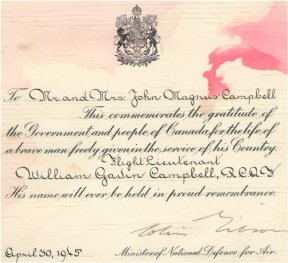 To Mr and Mrs. John Magnus Campbell
This commemorates the gratitude of
the Government and people of Canada for the life of
a brave man freely given in the service of his Country.
Flight Lieutenant
William Gavin Campbell, R.C.A.F.
His name will ever be held in proud remembrance.
Colin Gibson
April 30, 1945 Minister of National Defence for Air.